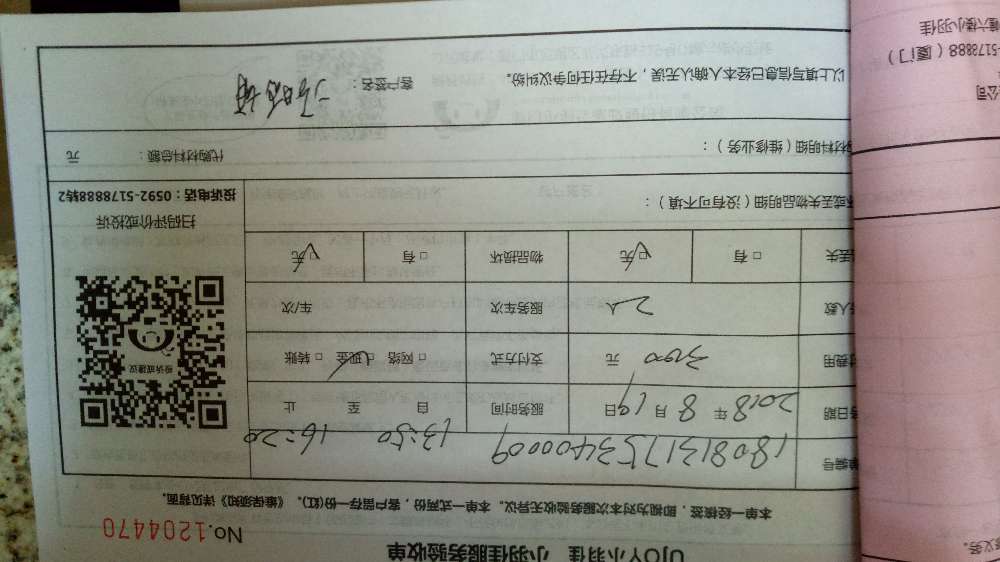 UJOY小羽佳 小羽佳服务验收单
No.1204470
本单一经核签，即视为对本次服务验收无异议。本单一式两份，客户留存一份(红)。《维保须知》详见背面。
单编号 180813175340009
务日期 2018年8月19日 服务时间 自 13:50 至 16:20 止
付费用 元 支付方式 □网络 ☑现金 □转账
人数 2人 服务车次 车/次
丢失 □有 ☑无 物品损坏 □有 ☑无
投诉或建议
扫码评价或投诉
投诉电话：0592-5178888转2
坏或丢失物品明细（没有可不填）：
材料明细（维修业务）： 代购材料总额： 元
以上填写信息已经本人确认无误，不存在任何争议纠纷。 客户签名：
公司
5178888（厦门）
楼六楼小羽佳